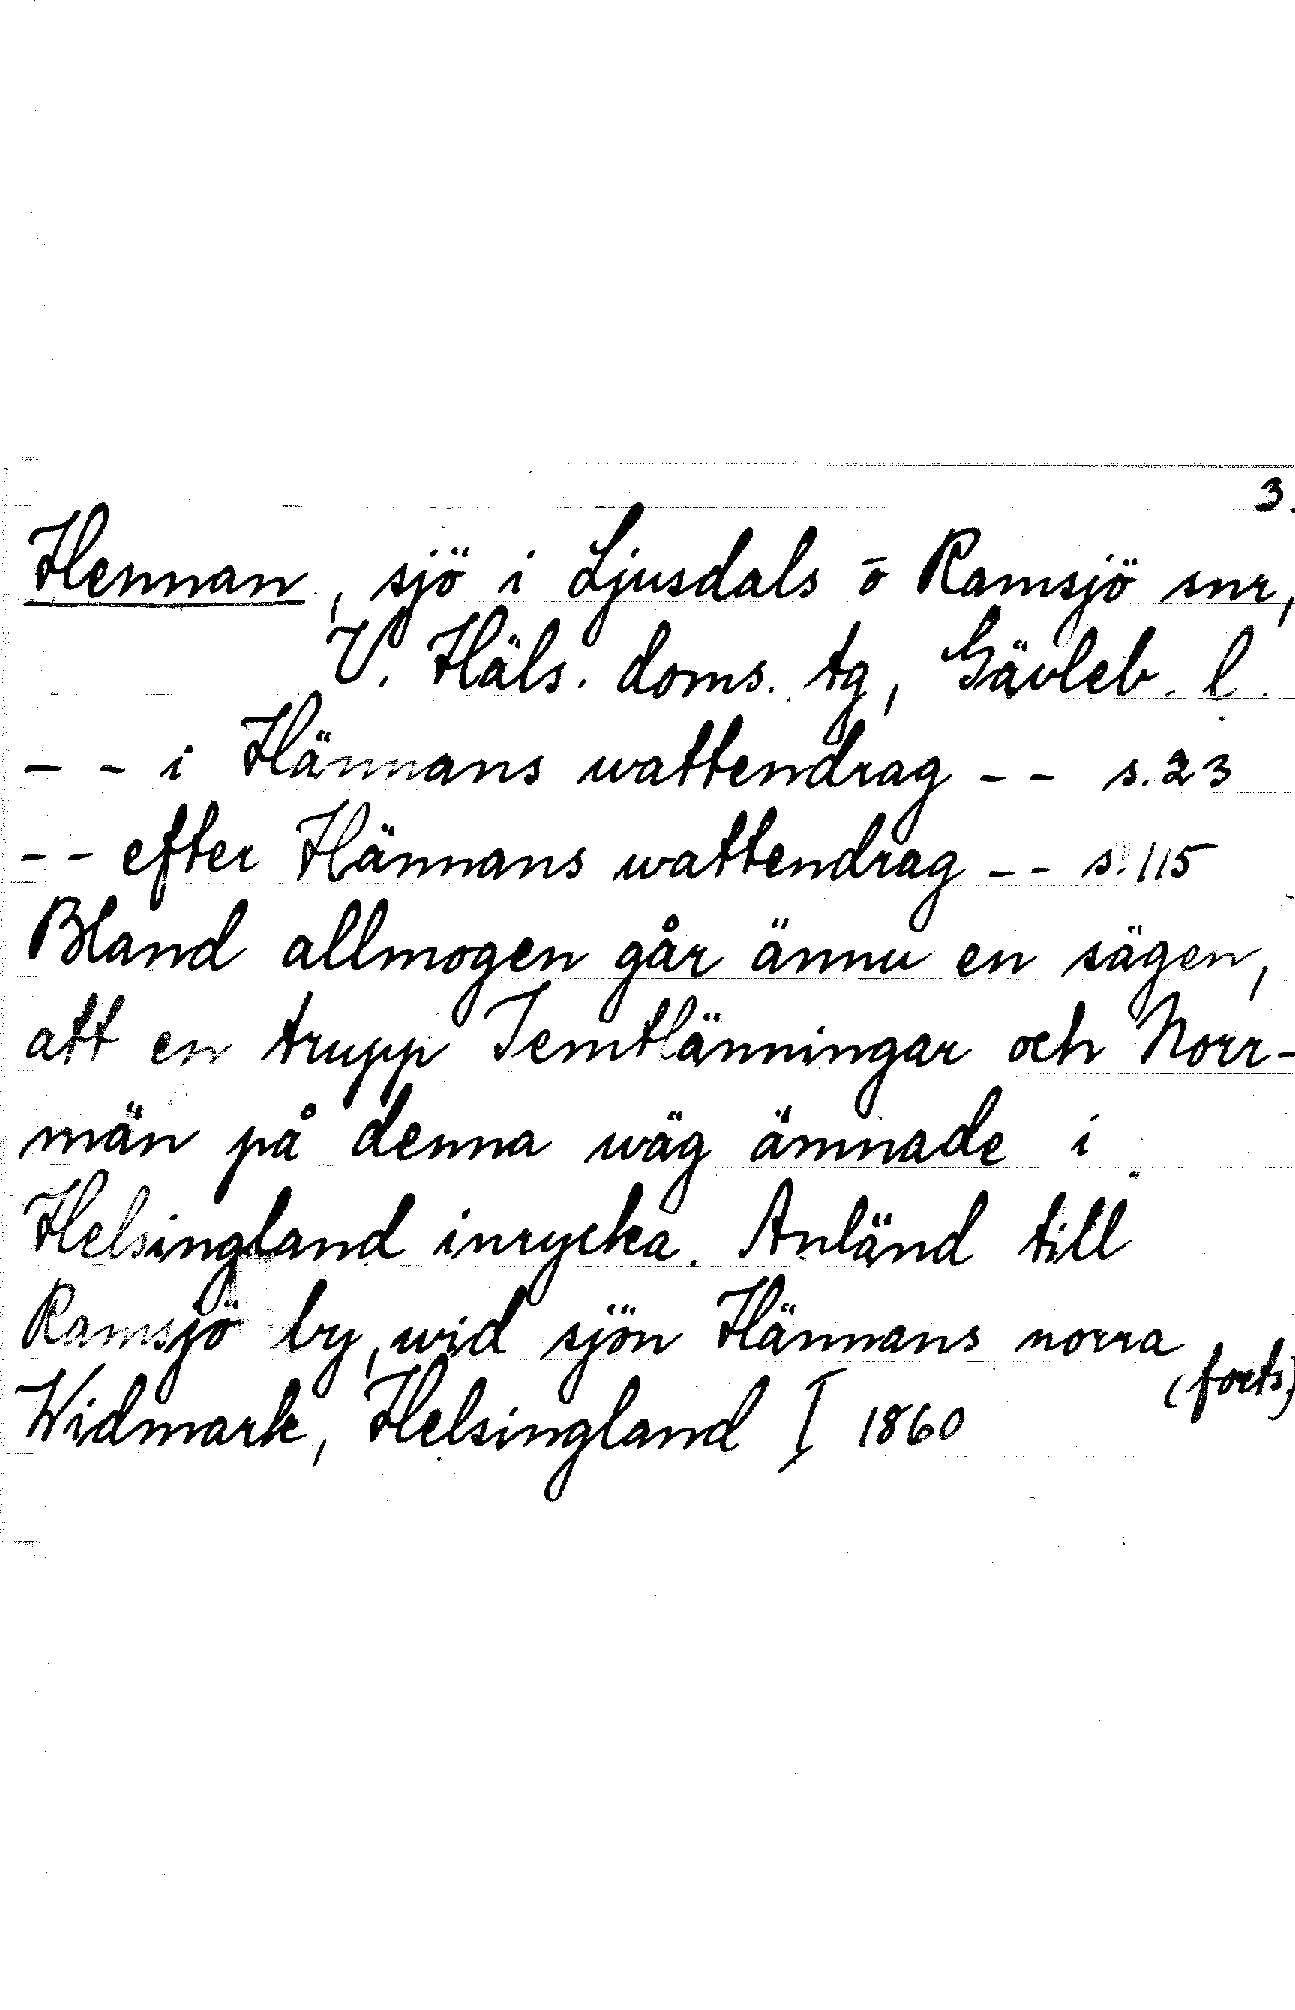 3.
Hennan, sjö i Ljusdals o Ramsjö snr,
V. Häls. doms. tg, Gävleb. l.
- - i Hännans wattendrag - - s. 23
- - efter Hännans wattendrag - - s. 115
Bland allmogen går ännu en sägen,
att en trupp Jemtlänningar och Norr-
män på denna wäg ämnade i
Helsingland inrycka. Anländ till
Ramsjö by, wid sjön Hännans norra
(forts)
Widmark, Helsingland I 1860